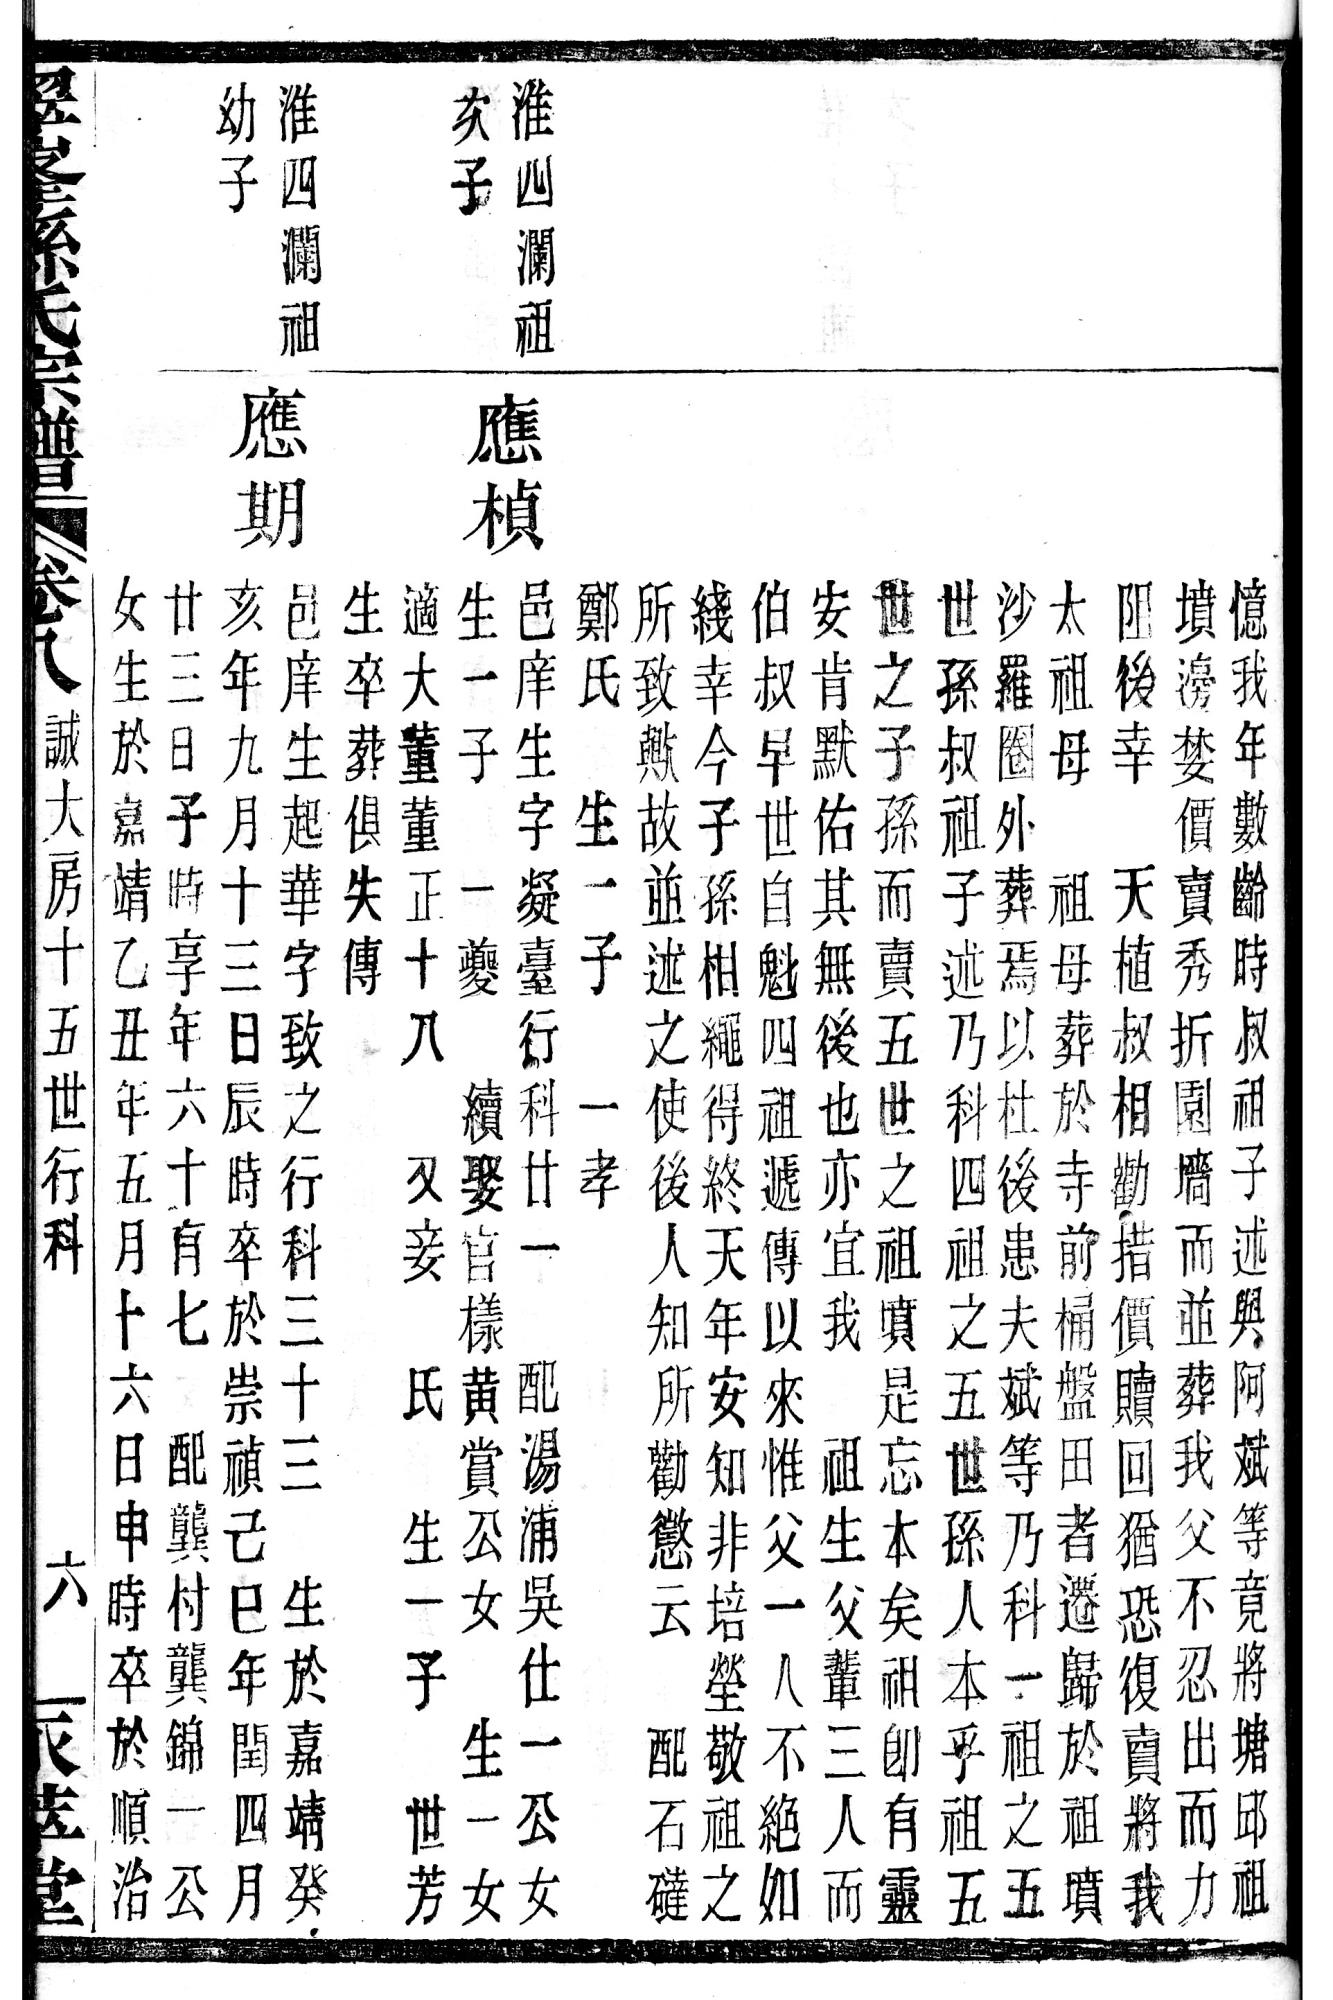 憶我年數齡時叔祖子述與阿斌等竟將塘邱祖
墳滂婪價賣秀折園墻而並葬我父不忍出而力
阻後幸 天植叔相勸措價贖回猶恐復賣將我
太祖母 祖母葬於寺前桶盤田者遷歸於祖墳
沙羅圈外葬焉以杜後患夫斌等乃科一祖之五
世孫叔祖子述乃科四祖之五世孫人本乎祖五
世之子孫而賣五世之祖墳是忘本矣祖卽有靈
安肯默佑其無後也亦宜我 祖生父輩三人而
伯叔早世自魁四祖遞傳以來惟父一人不絶如
綫幸今子孫相繩得終天年安知非培塋敬祖之
所致歟故並述之使後人知所勸懲云 配石䃮
鄭氏 生一子 一孝
淮四瀾祖
次子
應楨
邑庠生字凝臺行科廿一 配湯浦吳仕一公女
生一子 一夔 續娶官樣黄賞公女 生一女
適大董董正十八 又妾 氏 生一子 世芳
生卒葬俱失傳
淮四瀾祖
幼子
應期
邑庠生起華字致之行科三十三 生於嘉靖癸
亥年九月十三日辰時卒於崇禎己巳年閏四月
廿三日子時享年六十有七 配龔村龔錦一公
女生於嘉靖乙丑年五月十六日申時卒於順治
孫氏宗譜 卷八 誠大房十五世行科 六 堂